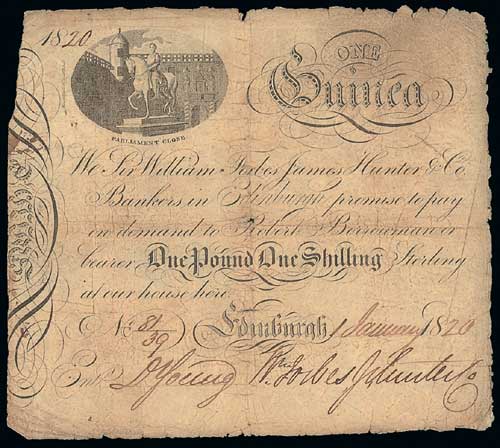 1820
ONE
Guinea
PARLIAMENT CLOSE
We Sir William Forbes James Hunter & Co.
Bankers in Edinburgh promise to pay
on demand to Robert or
bearer One Pound One Shilling Sterling
at our house here
No. 81/39 Edinburgh 1 January 1820
Entd. D Young Wm. Forbes J Hunter & Co